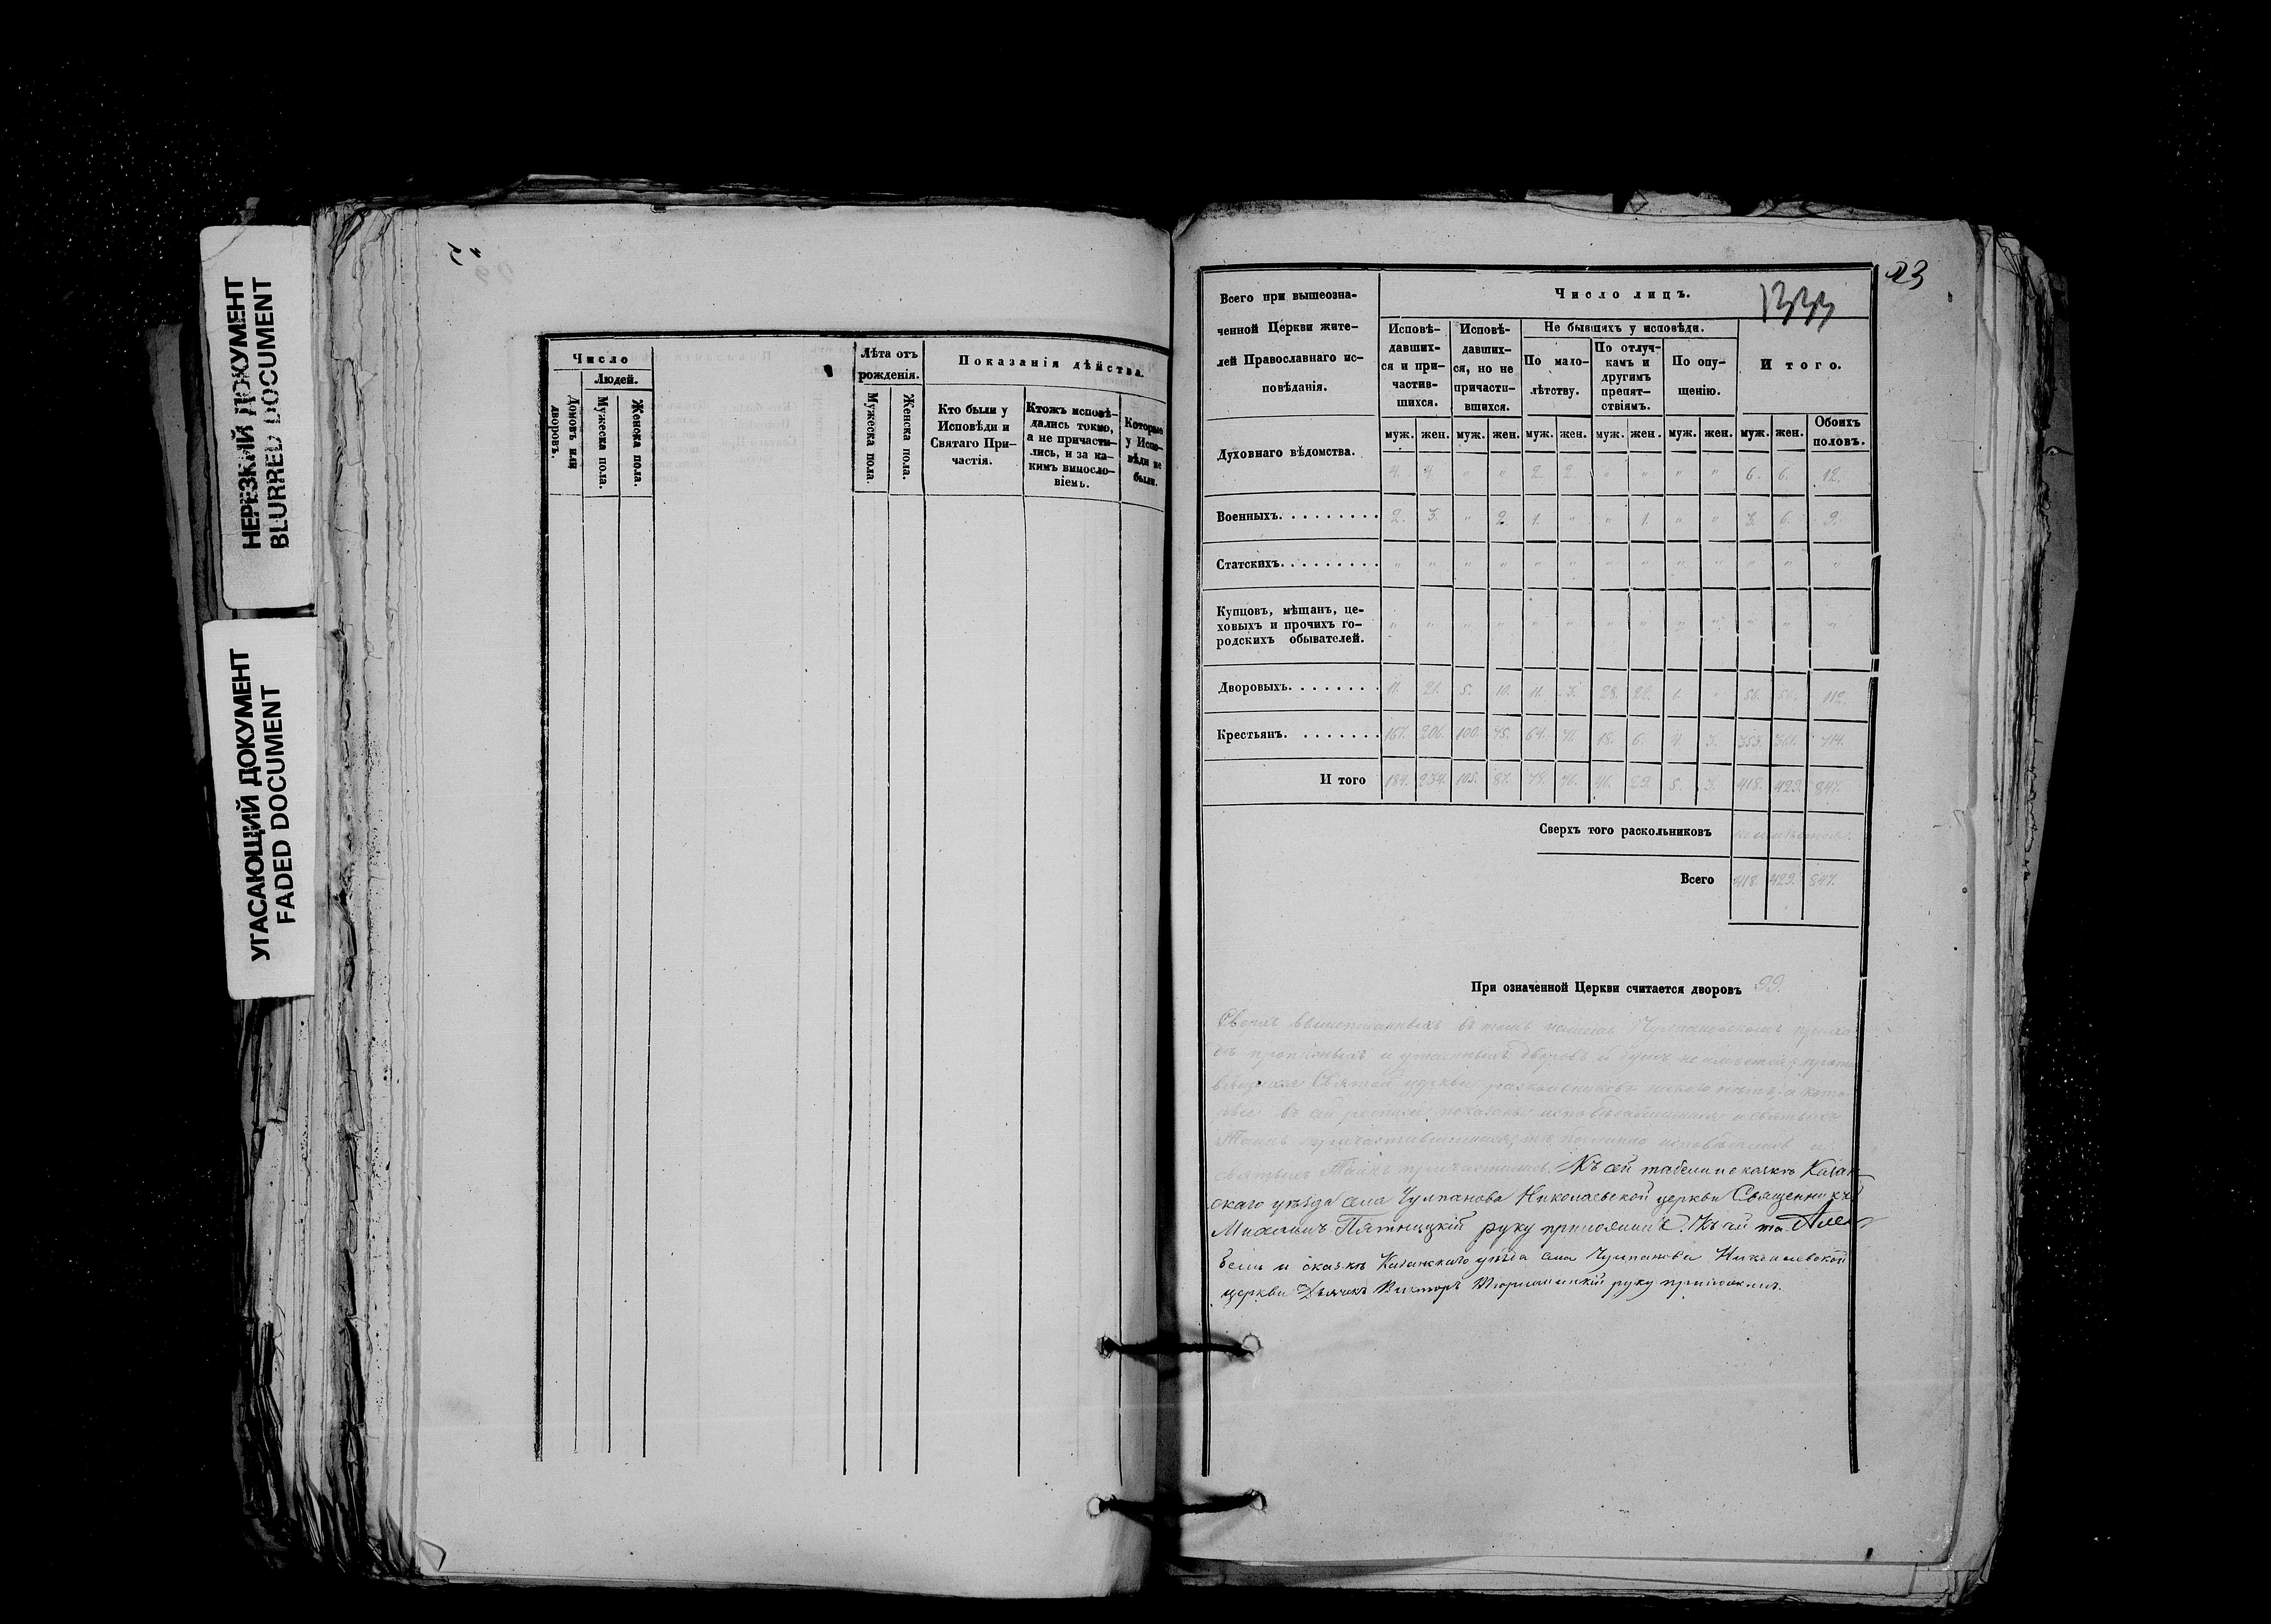 НЕРЕЗКИЙ ДОКУМЕНТ
BLURRED DOCUMENT
УГАСАЮЩИЙ ДОКУМЕНТ
FADED DOCUMENT
Число
Людей.
Домовъ или дворовъ.
Мужеска пола.
Женска пола.
Лѣта отъ рожденія.
Мужеска пола.
Женска пола.
Показанія дѣйства.
Кто были у
Исповѣди и
Святаго При-
частія.
Ктожъ исповѣ-
дались токмо,
а не причасти-
лись, и за ка-
кимъ винosло-
віемъ.
Которые
у Испо-
вѣди не
были.
23
1333
Всего при вышеозна-
ченной Церкви жите-
лей Православнаго ис-
повѣданія.
Число лицъ.
Исповѣ-
давших-
ся и при-
частив-
шихся.
Исповѣ-
давших-
ся, но не
причасти-
вшихся.
Не бывшихъ у исповѣди.
По мало-
лѣтству.
По отлуч-
камъ и
другимъ
препят-
ствіямъ.
По опу-
щенію.
И того.
муж. жен. муж. жен. муж. жен. муж. жен. муж. жен. муж. жен. Обоихъ половъ.
Духовнаго вѣдомства. 4. 4. " " 2. 2. " " " " 6. 6. 12.
Военныхъ. 2. 3. " 2. 1. " " 1. " " 3. 6. 9.
Статскихъ. " " " " " " " " " " " " "
Купцовъ, мѣщанъ, це-
ховыхъ и прочихъ го-
родскихъ обывателей. " " " " " " " " " " " " "
Дворовыхъ. 11. 21. 5. 10. 11. 3. 28. 22. 1. " 56. 56. 112.
Крестьянъ. 167. 206. 100. 75. 64. 71. 18. 6. 4. 3. 353. 361. 714.
И того 184. 234. 105. 87. 78. 76. 46. 29. 5. 3. 418. 429. 847.
Сверхъ того раскольниковъ не имѣется.
Всего 418. 429. 847.
При означенной Церкви считается дворовъ 99.
Сверхъ вышеписанныхъ въ томъ нашемъ Чулпановскомъ прихо-
дѣ прописныхъ и утаенныхъ дворовъ и душъ не имѣется; проти-
вящихся Святой церкви раскольниковъ никого нѣтъ; а кото-
рые въ сей росписи показаны исповѣдавшимися и святыхъ
Таинъ причастившимися, тѣ исповѣдались и
святыхъ Таинъ причастились. Къ сей табели и сказкѣ Казан-
скаго уѣзда села Чулпанова Николаевской церкви Священникъ
Михаилъ Пятницкій руку приложилъ. Къ сей та-
бели и сказкѣ Казанскаго уѣзда села Чулпанова Николаевской
церкви Дьячекъ Викторъ руку приложилъ.